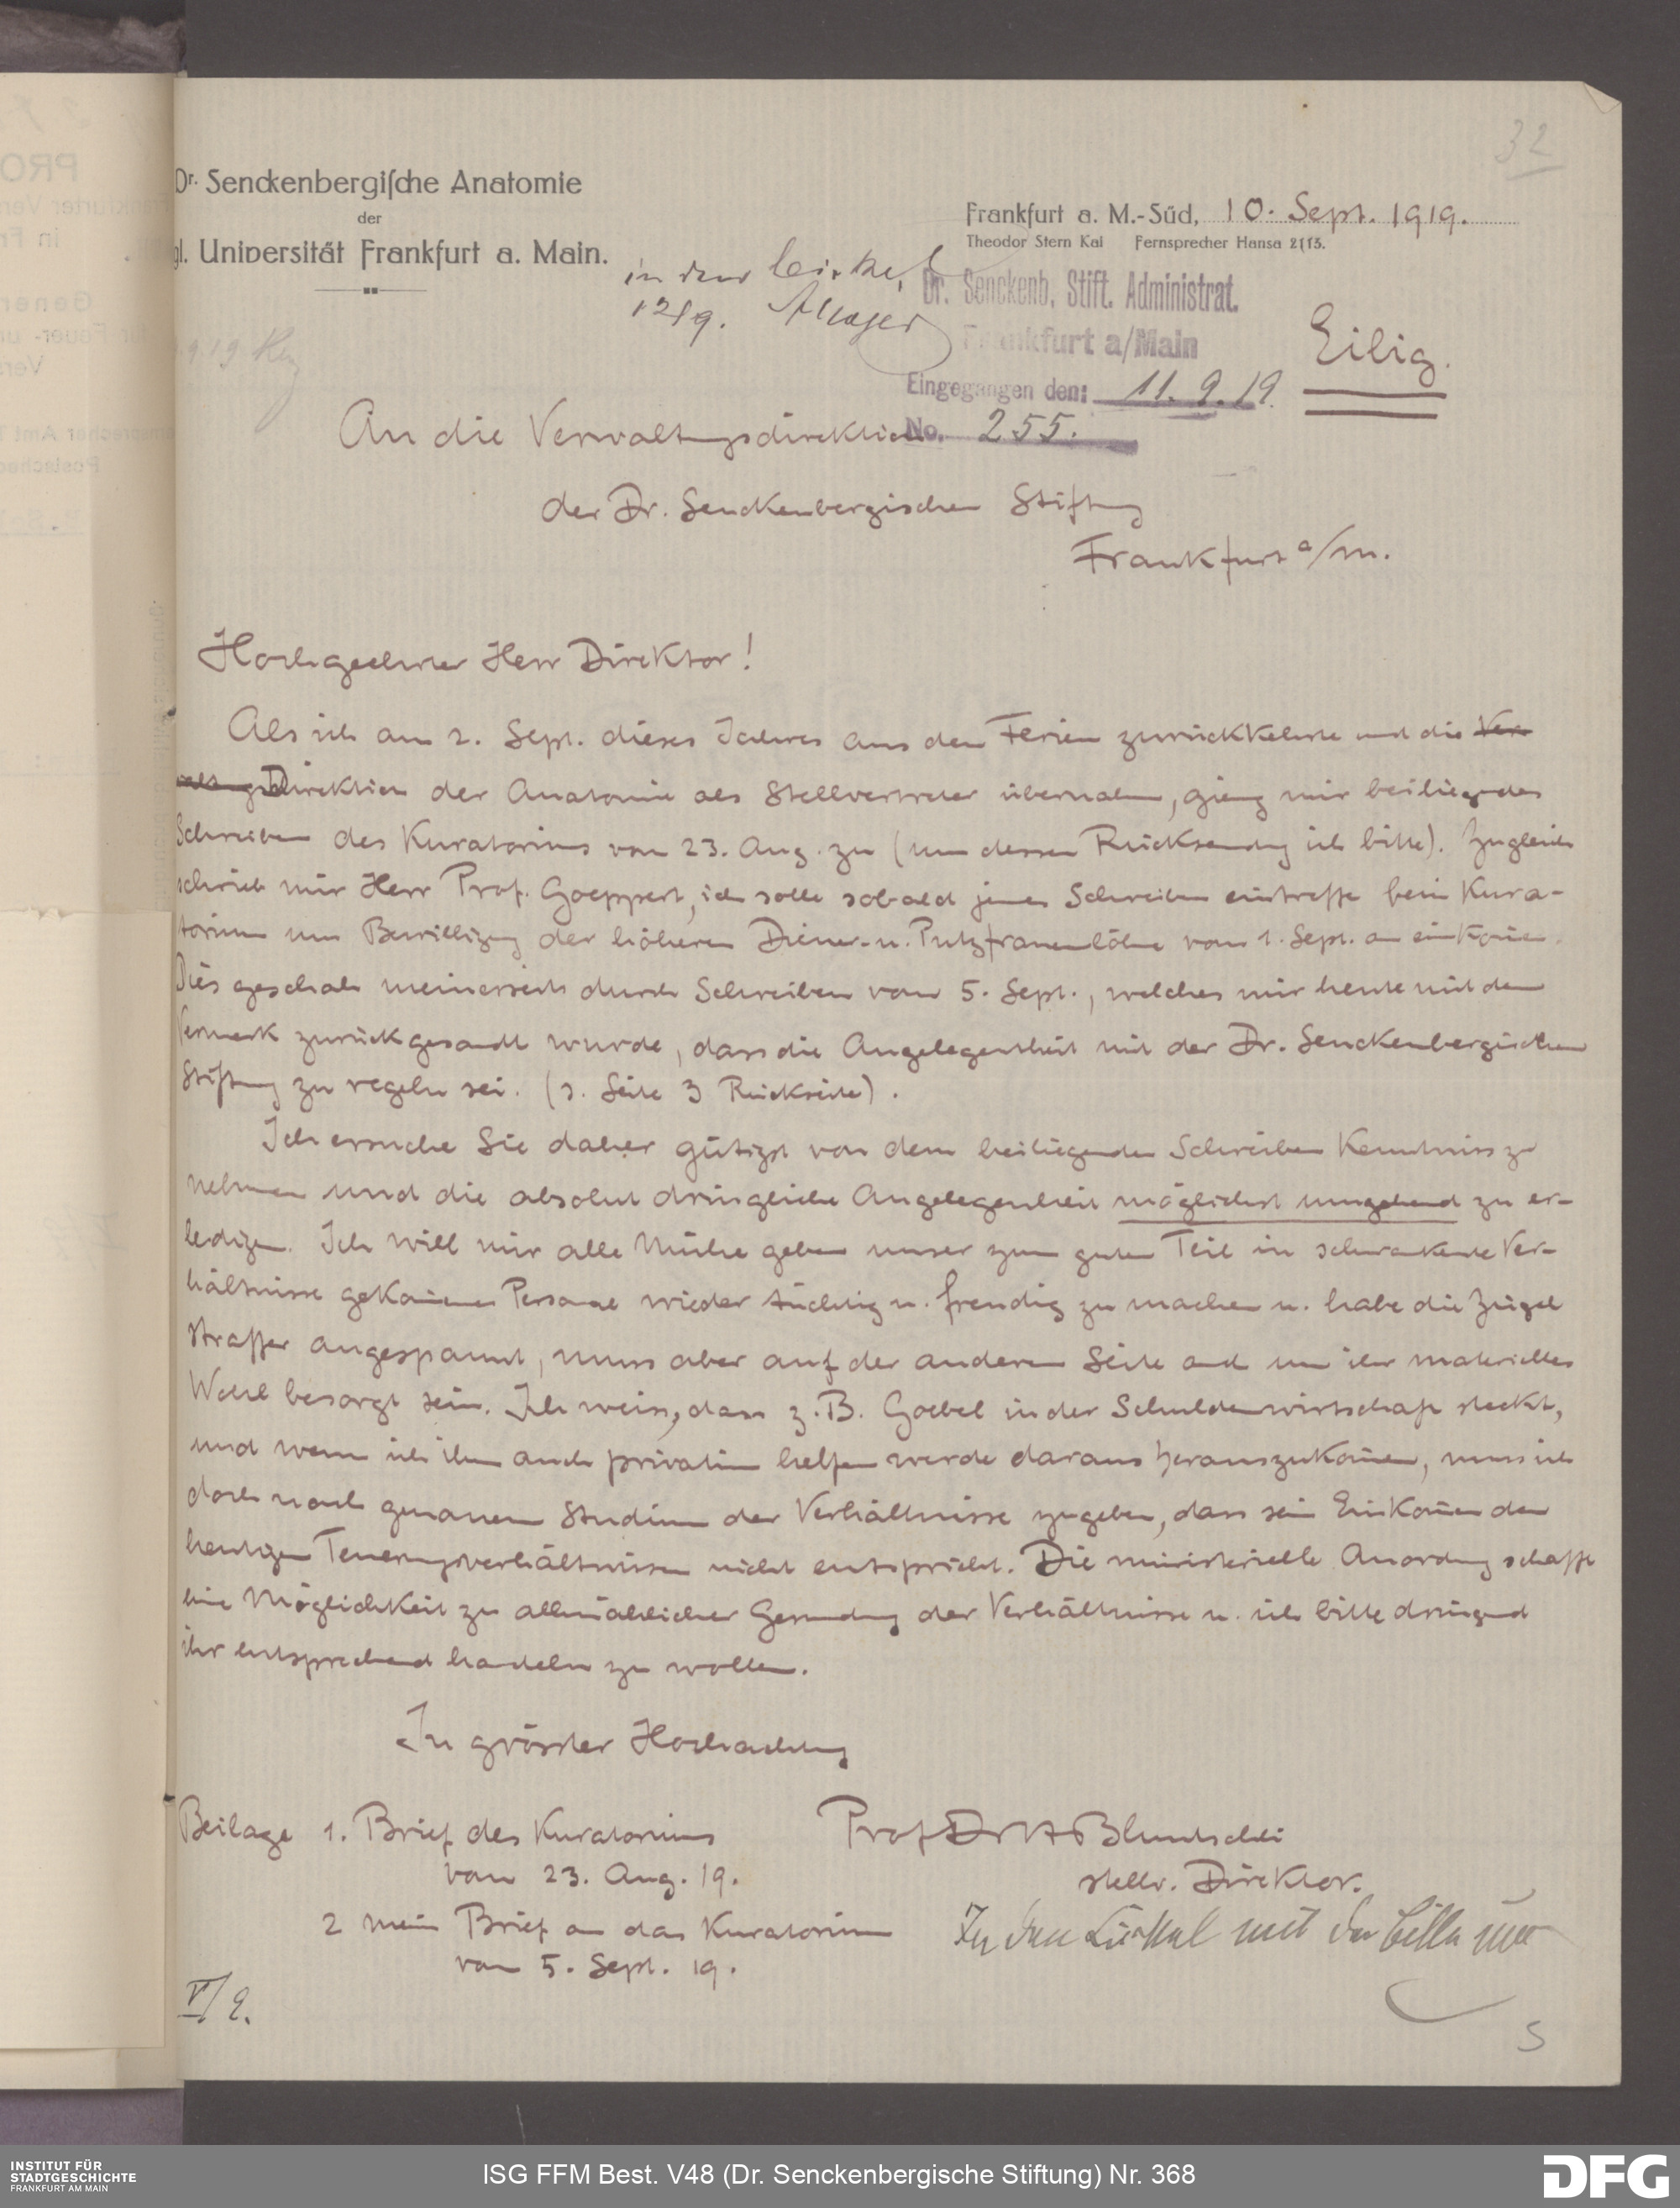 32
Dr. Senckenbergische Anatomie
der
gl. Universität Frankfurt a. Main.
Frankfurt a. M.-Süd, 10. Sept. 1919.
Theodor Stern Kai Fernsprecher Hansa 2113.
in den Cirkel
12/9.
Dr. Senckenb. Stift. Administrat.
Frankfurt a/Main
Eingegangen den: 11. 9. 19.
No. 255.
Eilig.
An die Verwaltungsdirektion
der Dr. Senckenbergischen Stiftung
Frankfurt a/M.
Hochgeehrter Herr Direktor!
Als ich am 2. Sept. dieses Jahres aus den Ferien zurückkehrte und die Ver-
waltungsDirektion der Anatomie als Stellvertreter übernahm, gieng mir beiliegendes
Schreiben des Kuratoriums vom 23. Aug. zu (um dessen Rücksendung ich bitte). Zugleich
schrieb mir Herr Prof. Goeppert, ich solle sobald jenes Schreiben eintreffe beim Kura-
torium um Bewilligung der höheren Diener- u. Putzfrauenlöhne vom 1. Sept. an einkom̄en.
Dies geschah meinerseits durch Schreiben vom 5. Sept., welches mir heute mit dem
Vermerk zurückgesandt wurde, dass die Angelegenheit mit der Dr. Senckenbergischen
Stiftung zu regeln sei. (s. Seite 3 Rückseite).
Ich ersuche Sie daher gütigst von dem beiliegenden Schreiben Kenntniss zu
nehmen und die absolut dringliche Angelegenheit möglichst umgehend zu er-
ledigen. Ich will mir alle Mühe geben unser zum guten Teil in schwankende Ver-
hältnisse gekom̄enes Personal wieder tüchtig u. freudig zu machen u. habe die Zügel
straffer angespannt, muss aber auf der anderen Seite auch um ihr materielles
Wohl besorgt sein. Ich weiss, dass z. B. Goebel in der Schuldenwirtschaft steckt,
und wenn ich ihm auch privatim helfen werde daraus herauszukom̄en, muss ich
doch nach genauem Studium der Verhältnisse zugeben, dass sein Einkom̄en den
heutigen Teuerungsverhältnissen nicht entspricht. Die ministerielle Anordnung schafft
eine Möglichkeit zu allmählicher Gesundung der Verhältnisse u. ich bitte dringend
ihr entsprechend handeln zu wollen.
In grösster Hochachtung
Prof Dr H Bluntschli
stellv. Direktor.
Beilage 1. Brief des Kuratoriums
vom 23. Aug. 19.
2 mein Brief an das Kuratorium
vom 5. Sept. 19.
In den Cirkel mit der Bitte um
V/9.
S
INSTITUT FÜR
STADTGESCHICHTE
FRANKFURT AM MAIN
ISG FFM Best. V48 (Dr. Senckenbergische Stiftung) Nr. 368
DFG